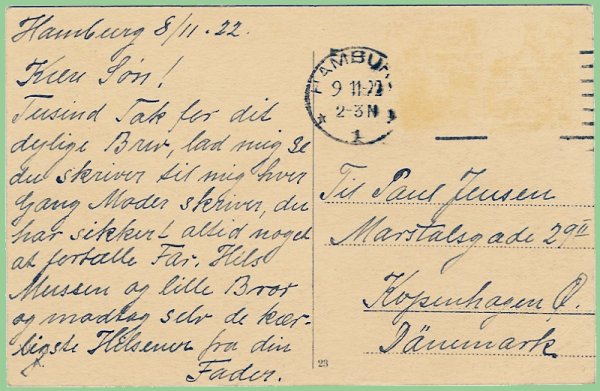 Hamburg 8/11.22.
Kære Søn!
Tusind Tak for dit
dejlige Brev, lad mig se
du skriver til mig hver
Gang Moder skriver, du
har sikkert altid noget
at fortælle Far. Hils
Mussen og lille Bror
og modtag selv de kær-
ligste Hilsener fra din
Fader.
HAMBUR
9 11.22
2-3 N
* 1
Til Paul Jensen
Marstalsgade 29 II
Kopenhagen Ø.
Dänemark
23